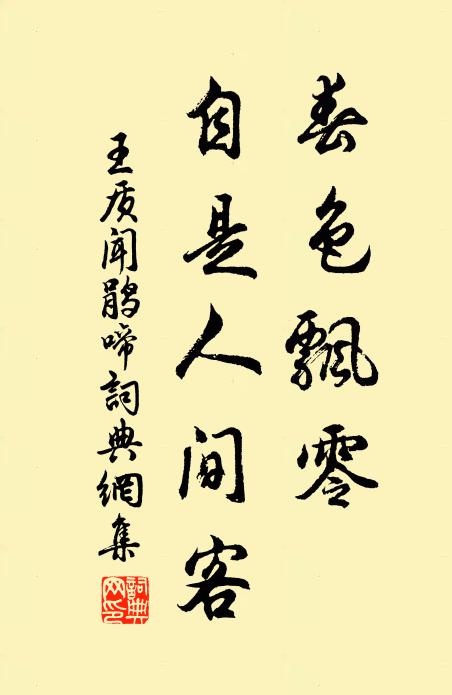 春色飄零
自是人间客
王质闻鹃啼詞典網集
詞典网印